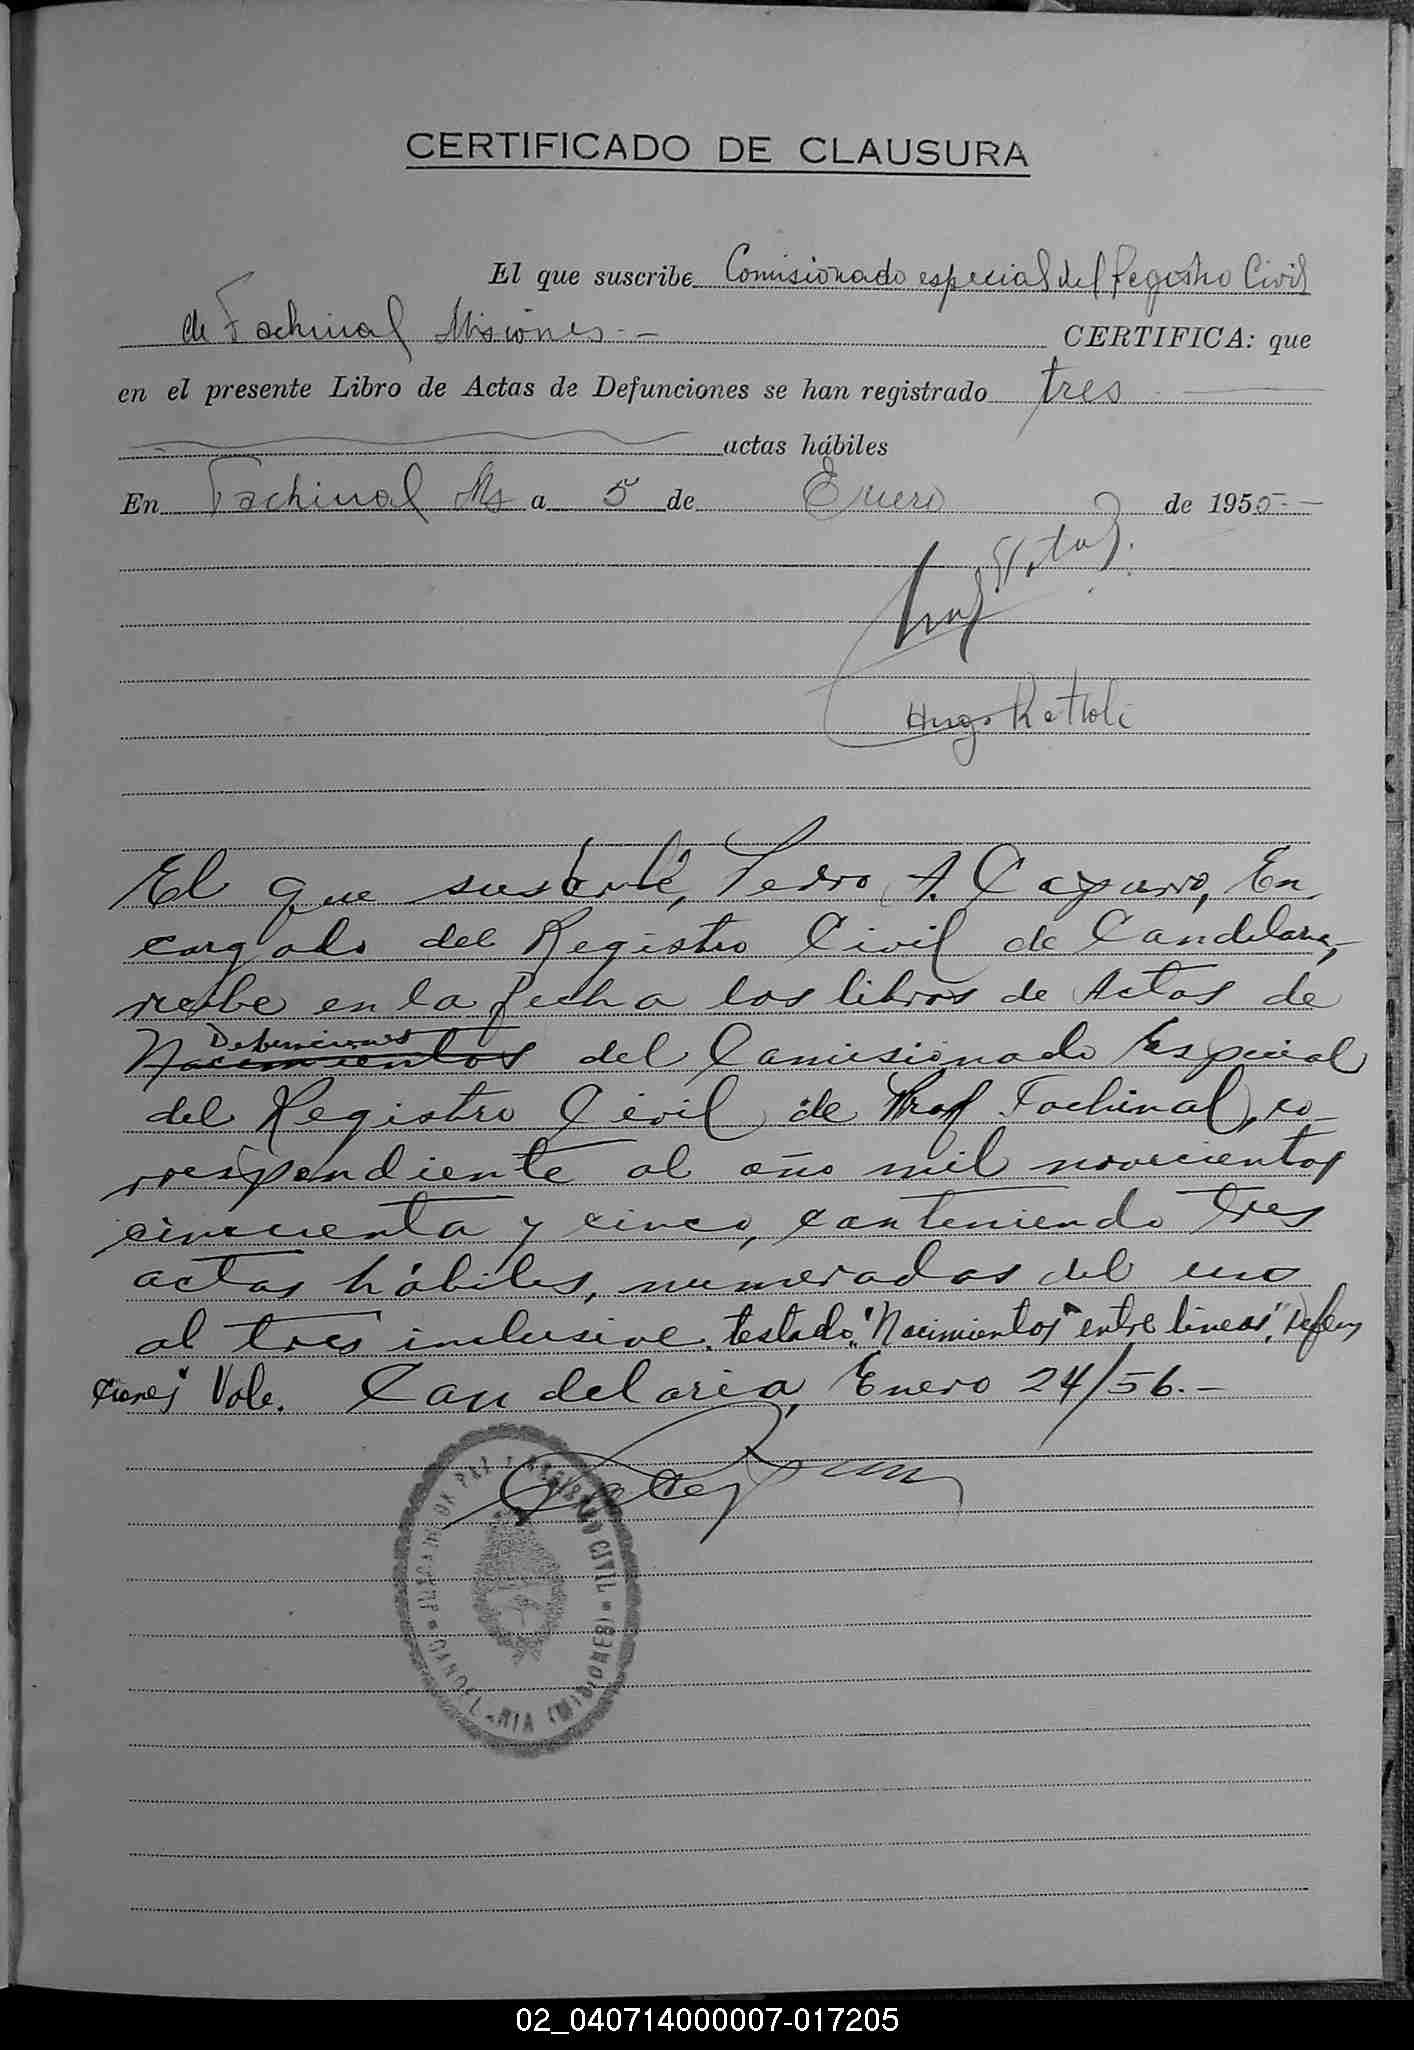 CERTIFICADO DE CLAUSURA
El que suscribe Comisionado especial del Registro Civil
de Fachinal Misiones.- CERTIFICA: que
en el presente Libro de Actas de Defunciones se han registrado tres
actas hábiles
En Fachinal Ms a 5 de Enero de 1955--
Hugo Rettoli
El que suscribe, Pedro A. Capurro, En
cargado del Registro Civil de Candelaria,
recibe en la fecha los libros de Actas de
Defunciones
Nacimientos del Comisionado Especial
del Registro Civil de Prof. Fachinal, co-
rrespondiente al año mil novecientos
cincuenta y cinco, conteniendo tres
actas hábiles, numeradas del uno
al tres inclusive. testado: "Nacimientos" entre lineas: "Defun
ciones" Vale. Candelaria, Enero 24/56.-
JUZGADO DE PAZ Y REGISTRO CIVIL * CANDELARIA (MISIONES)
02_040714000007-017205